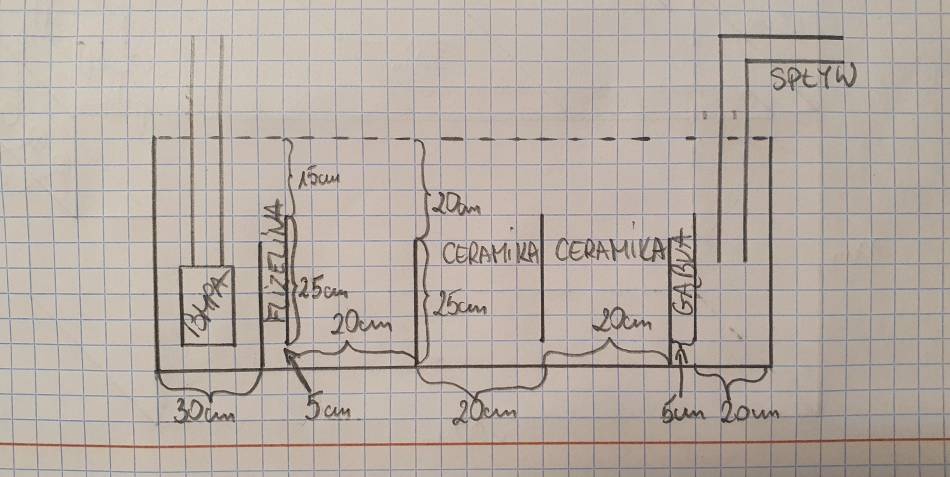 SPŁYW
15cm
20cm
FLIZELINA
CERAMIKA
CERAMIKA
GĄBKA
25cm
25cm
20cm
20cm
30cm
5cm
20cm
5cm
20cm